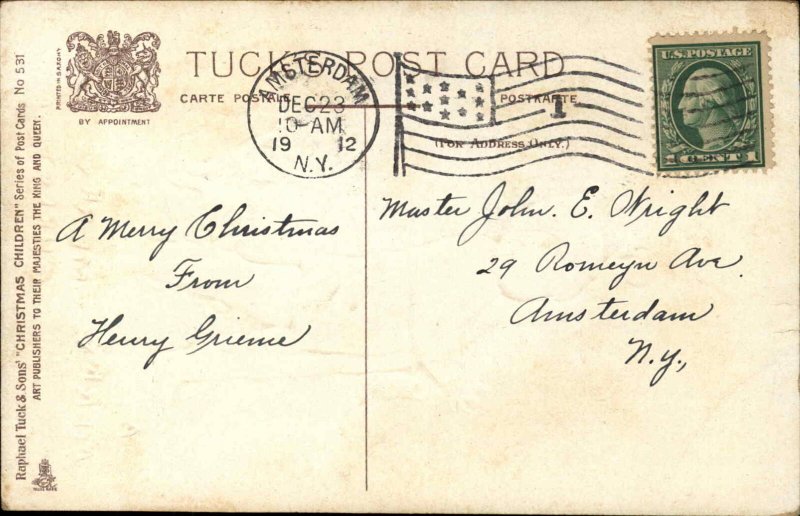 TUCK'S POST CARD
CARTE POSTALE
POSTKARTE
(FOR ADDRESS ONLY.)
PRINTED IN SAXONY
BY APPOINTMENT
Raphael Tuck & Sons' "CHRISTMAS CHILDREN" Series of Post Cards No 531
ART PUBLISHERS TO THEIR MAJESTIES THE KING AND QUEEN.
AMSTERDAM
DEC 23
10-AM
19 12
N.Y.
1
U.S. POSTAGE
1 CENT 1
A Merry Christmas
From
Henry Grieme
Master John. E. Wright
29 Romeyn Ave.
Amsterdam
N.Y.,